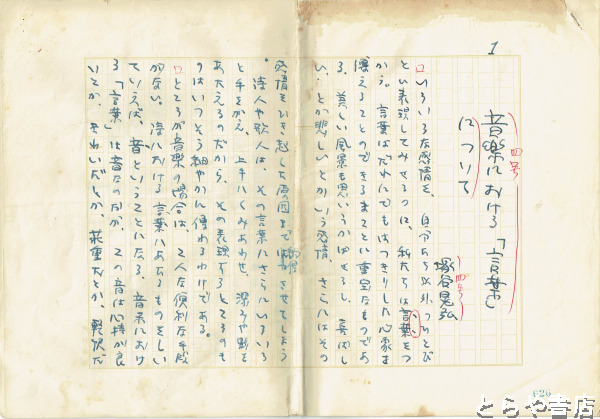 1
四号
音楽における「言葉」
について
四号
塚谷晃弘
いろいろな感情を、自分たち以外のひとび
とに表現してみせるのに、私たちは言葉をつ
かう。言葉はだれにでもはっきりした心象を
伝えることのできるまことに重宝なものであ
る。美しい風景も思いうかばせるし、喜ばし
い、とか悲しいとかいう感情、さらにはその
感情をひき起した原因まで納得させてしまう
。詩人や歌人は、その言葉にさらにいろいろ
と手をかえ、上手にくみあわせ、深みや影を
あたえるのだから、その表現するところのも
のはいっそう細やかに伝わるわけである。
ところが音楽の場合は、こんな便利な手段
がない。詩における言葉にあたるものをしい
ていえば、音ということになる。音楽におけ
る「言葉」は音なのだが、この音は心持が良
いとか、きれいだとか、荘重だとか、軽快だ
とらや書店